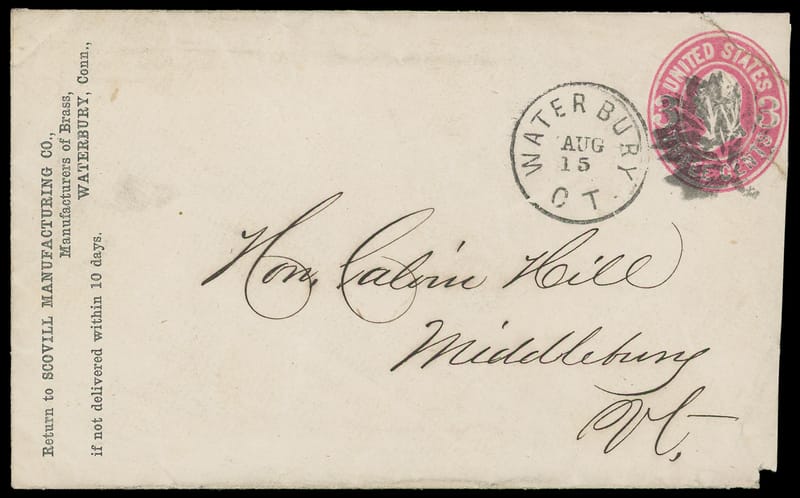 Return to SCOVILL MANUFACTURING CO.,
Manufacturers of Brass,
WATERBURY, Conn.,
if not delivered within 10 days.
WATERBURY
AUG
15
CT.
UNITED STATES
3 3
Hon. Calvin Hill
Middlebury
Vt.